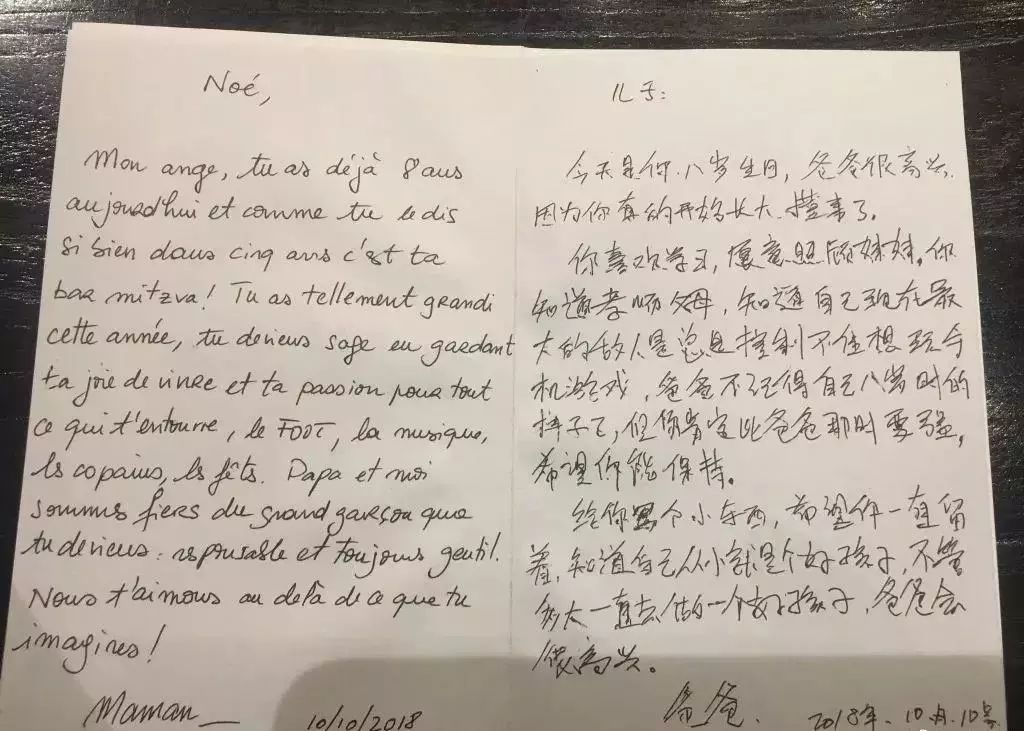 Noé,
Mon ange, tu as déjà 8 ans
aujourd'hui et comme tu le dis
si bien dans cinq ans c'est ta
bar mitzva! Tu as tellement grandi
cette année, tu deviens sage en gardant
ta joie de vivre et ta passion pour tout
ce qui t'entourre, le FOOT, la musique,
les copains, les fêts. Papa et moi
sommes fiers du grand garçon que
tu deviens : responsable et toujours gentil.
Nous t'aimons au delà de ce que tu
imagines!
Maman
10/10/2018
儿子：
今天是你八岁生日，爸爸很高兴，
因为你真的开始长大、懂事了。
你喜欢学习，愿意照顾妹妹。你
知道孝顺父母，知道自己现在最
大的敌人是总是控制不住想玩手
机游戏，爸爸不记得自己八岁时的
样子了，但你肯定比爸爸那时要强，
希望你能保持。
给你买个小东西，希望你一直留
着，知道自己从小就是个好孩子，不管
多大一直去做一个好孩子，爸爸会
很高兴。
爸爸.
2018年.10月.10号